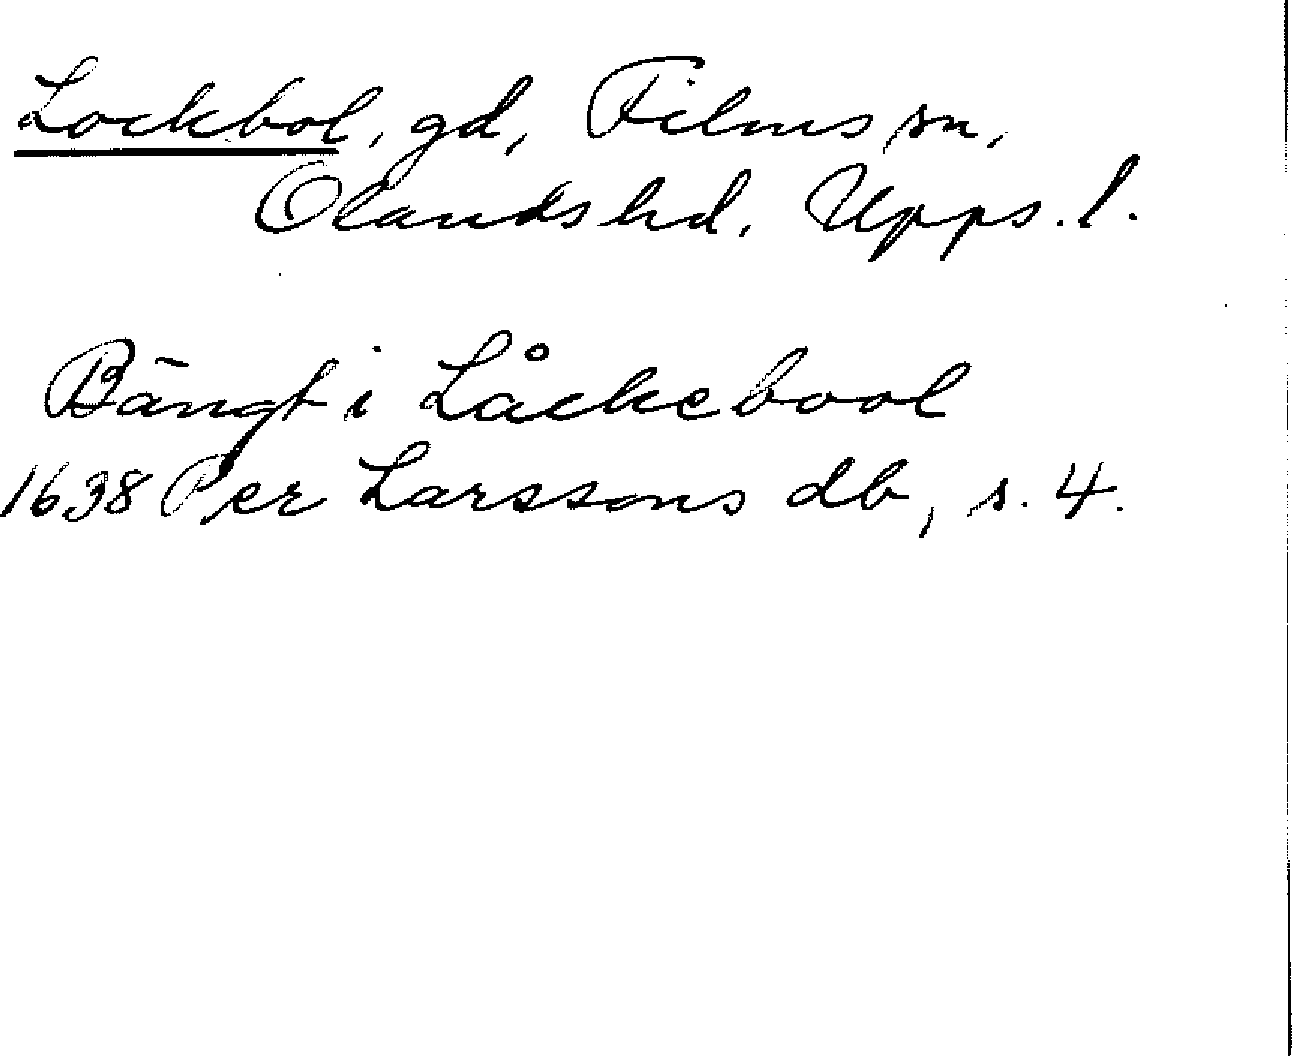 Lockbol, gd, Films sn,
Olands hd, Upps. l.
Bängt i Låckebool
1638 Per Larssons db, s. 4.